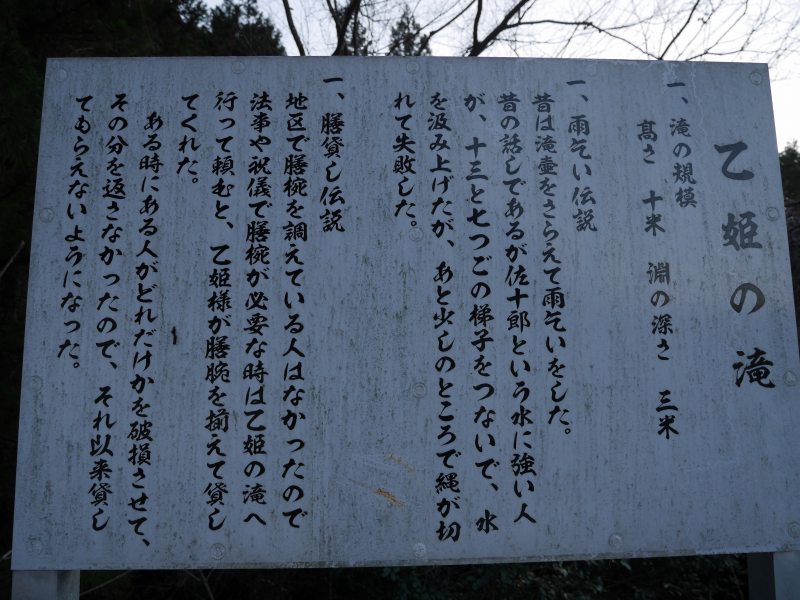 乙姫の滝
一、滝の規模
高さ 十米 淵の深さ 三米
一、雨乞い伝説
昔は滝壷をさらえて雨乞いをした。
昔の話しであるが佐十郎という水に強い人
が、十三と七つごの梯子をつないで、水
を汲み上げたが、あと少しのところで縄が切
れて失敗した。
一、膳貸し伝説
地区で膳椀を調えている人はなかったので
法事や祝儀で膳椀が必要な時は乙姫の滝へ
行って頼むと、乙姫様が膳腕を揃えて貸し
てくれた。
ある時にある人がどれだけかを破損させて、
その分を返さなかったので、それ以来貸し
てもらえないようになった。